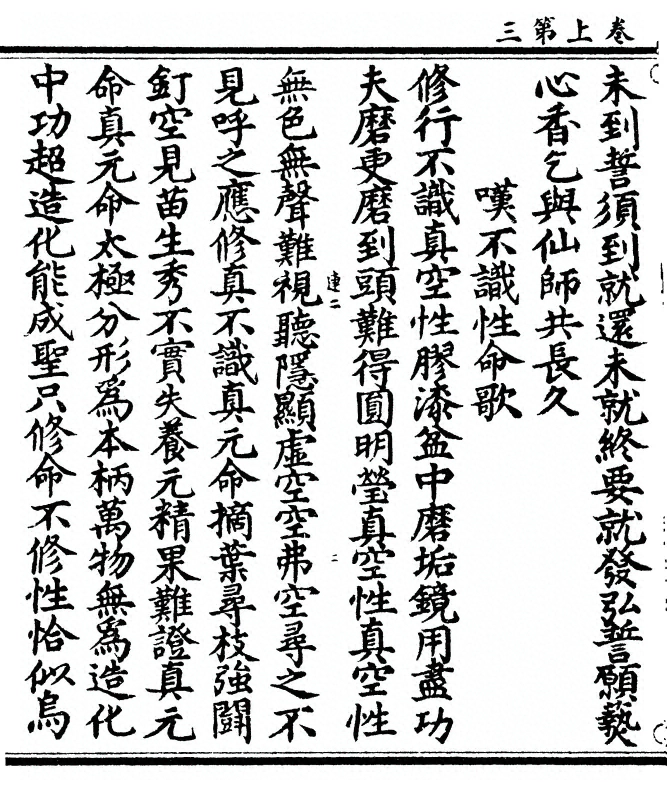 卷上第三
未到誓須到就還未就終要就發弘誓願爇
心香乞與仙師共長久
嘆不識性命歌
修行不識真空性膠漆盆中磨垢鏡用盡功
夫磨更磨到頭難得圓明瑩真空性真空性
連二
二
無色無聲難視聽隱顯虛空空弗空尋之不
見呼之應修真不識真元命摘葉尋枝強鬭
釘空見苗生秀不實失養元精果難證真元
命真元命太極分形爲本柄萬物無爲造化
中功超造化能成聖只修命不修性恰似鳥